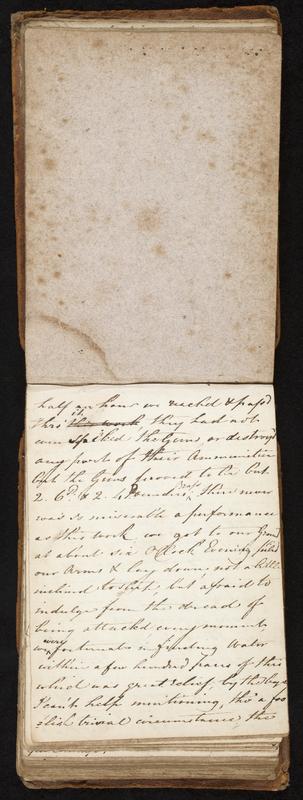 half an hour we reach'd & pass'd
thro' it this work, they had not
even Spiked the Guns, or destroy'd
any part of their Ammunition
but the Guns proved to be but
2. 6 P.rs & 2. 4 Pounders, there never
was so miserable a performance
as this work, we got to our Ground
at about six o'Clock Evening, piled
our Arms & lay down, not a little
inclined to Sleep, but afraid to
indulge from the dread of
being attack'd every moment,
were fortunate in finding Water
within a few hundred paces of this
which was great relief, by the bye
I can't help mentioning, tho' a foo
=lish trivial circumstance, the